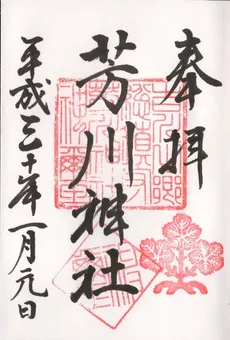 奉拝
芳川神社
平成三十年一月元日